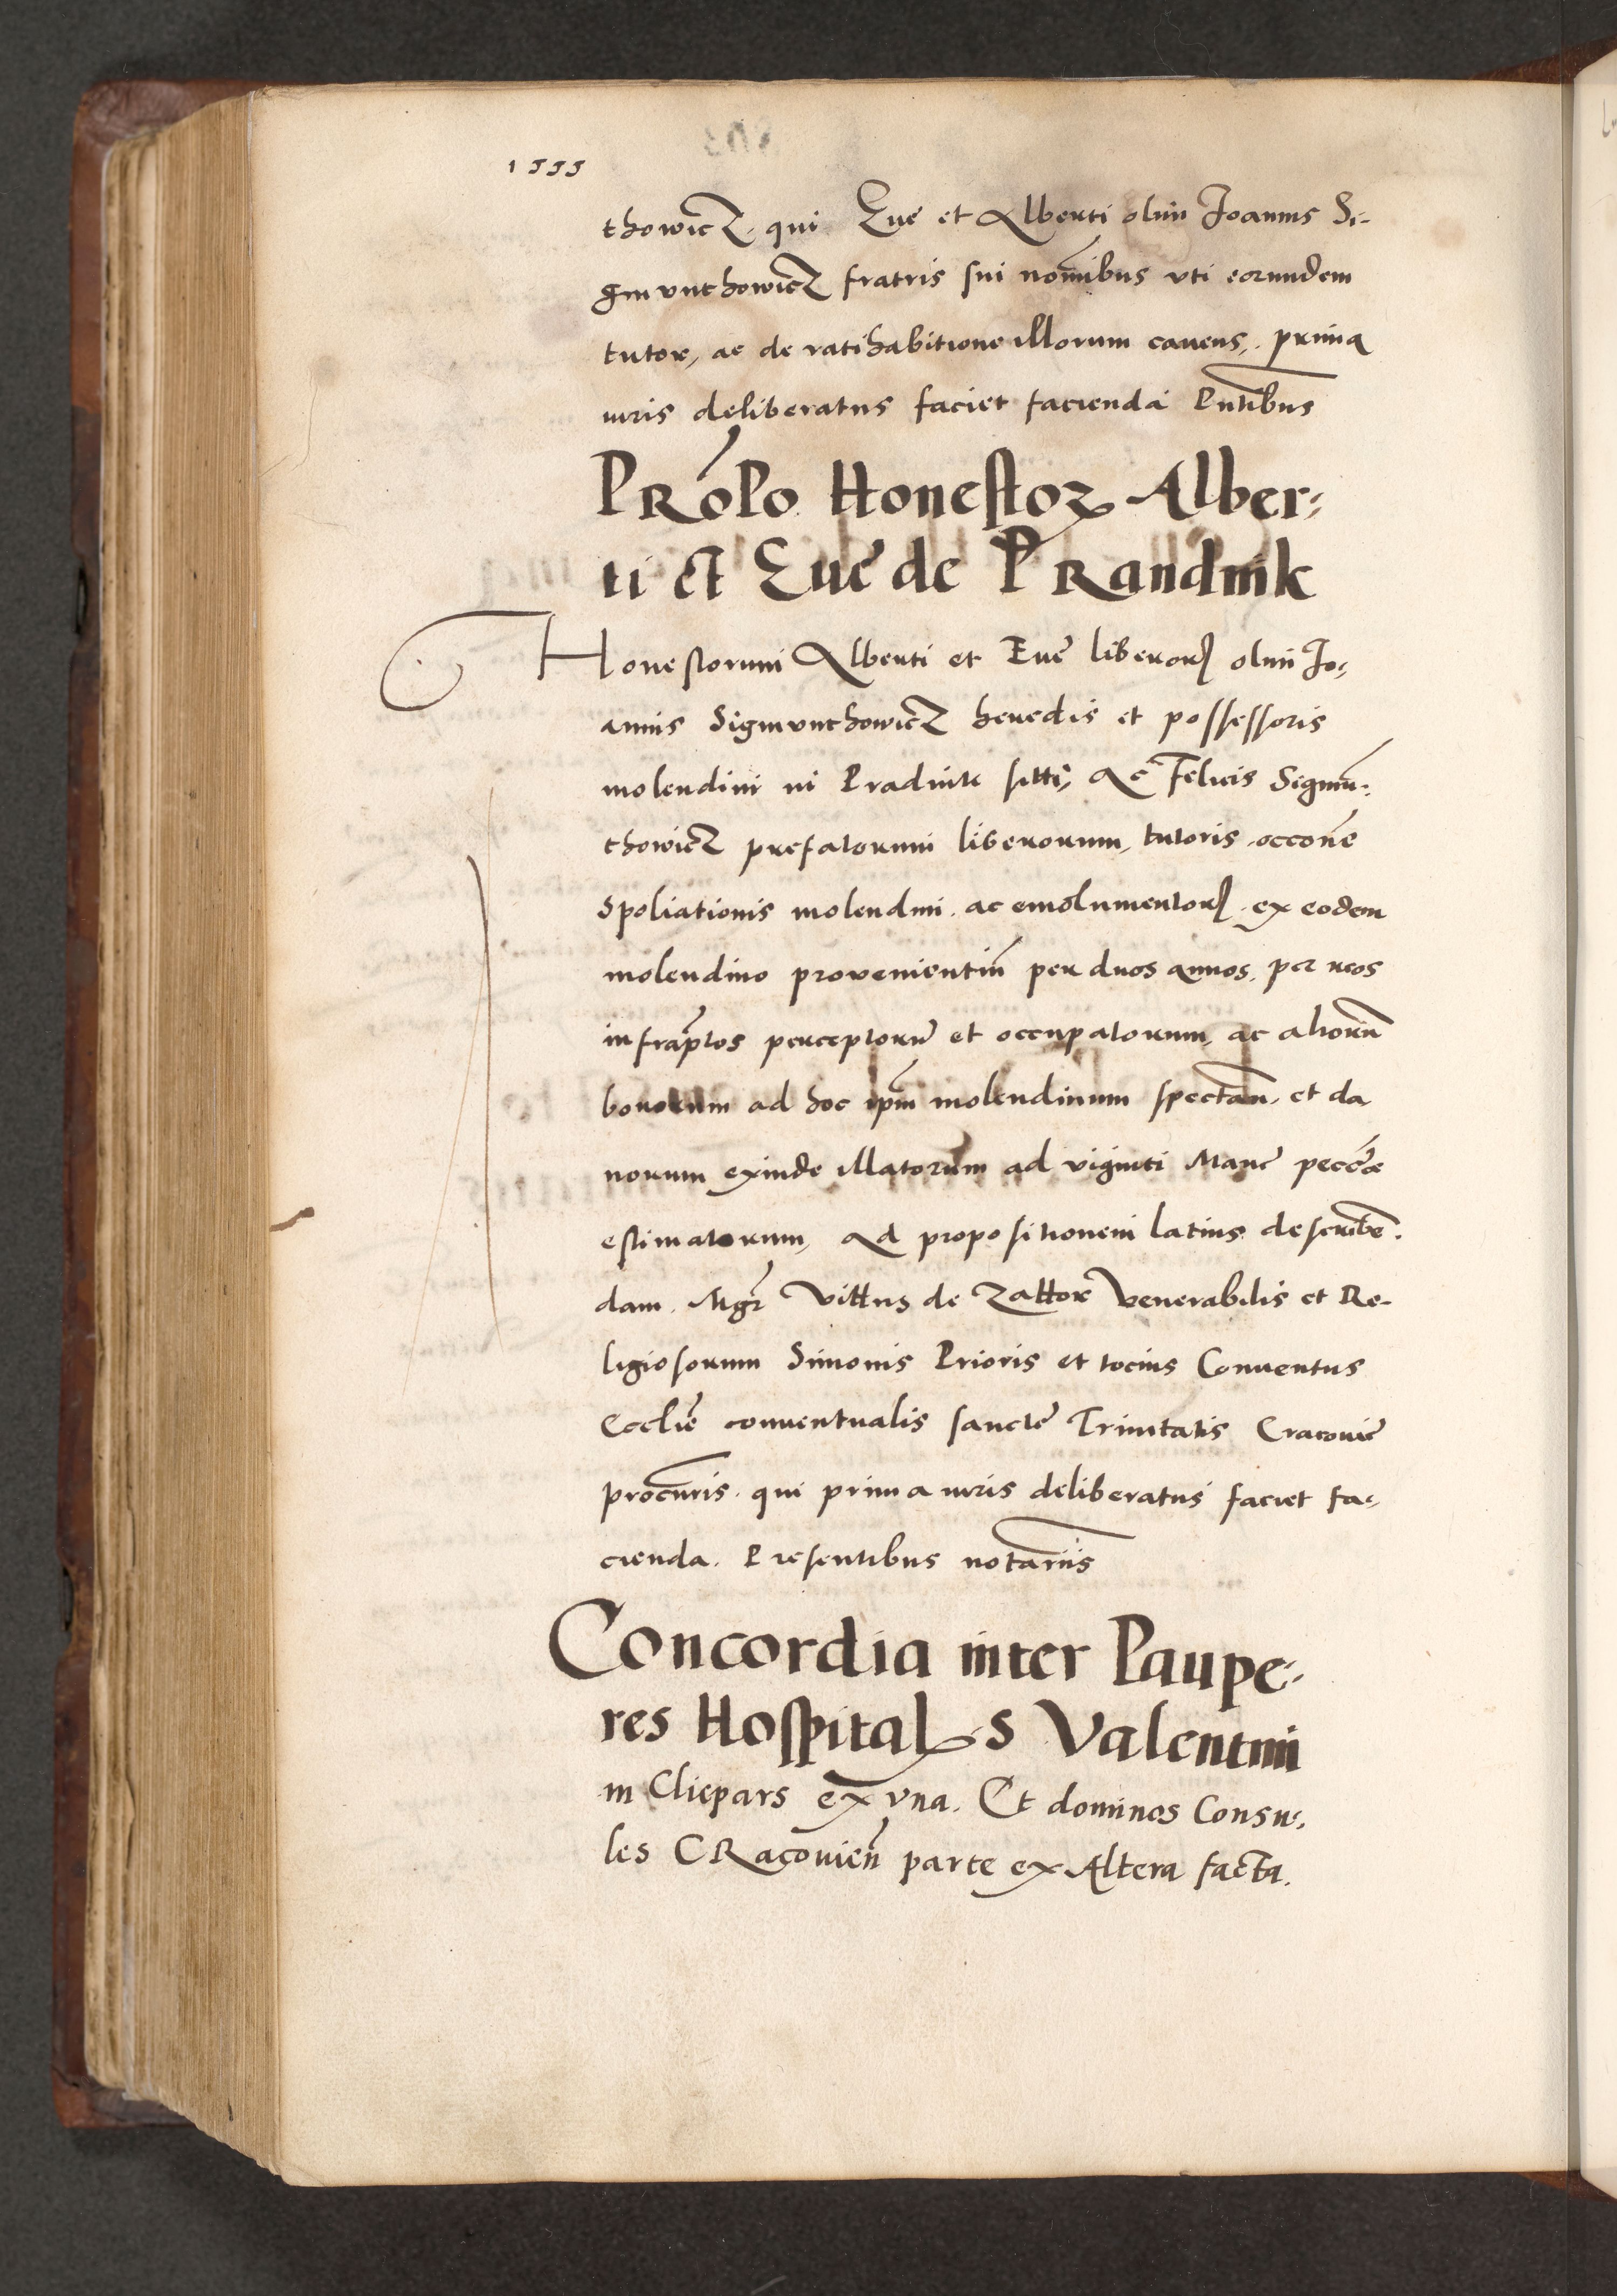 1555
thowicz. qui Euę et Alberti olim Joannis Si-
gmunthowicz fratris sui nominibus vti eorundem
tutor, ac de ratihabitione illorum cauens, prima
iuris deliberatus faciet facienda Pntibus
PRopo Honestoꝝ Alber-
ti et Euę de PRandnik
Honestorum Alberti et Euę liberorꝫ olim Jo-
annis Sigmunthowicz heredis et possessoris
molendini in Pradnik sitti, Ac Felicis Sigmu-
thowicz prefatorum liberorum, tutoris occone
Spoliationis molendini. ac emolumentorꝫ. ex eodem
molendino prouenientiū per duos annos. per reos
infraptos perceptorū et occupatorum, ac aliorū
bonorum ad hoc ipm molendinum spectan. et da
norum exinde illatorum ad viginti Marc pecce
estimatorum, Ad propositionem latius describē-
dam. Mgr Vittus de Zattor Venerabilis et Re-
ligiosorum Simonis Prioris et tocius Conuentus
Ecclię conuentualis sanctę Trinitatis Cracouię
procuris. qui prima iuris deliberatus faciet fa-
cienda. Presentibus notariis
Concordia inter Paupe-
res Hospitał S Valentini
in Cliepars ex vna. Et dominos Consu-
les CRacouien parte ex Altera facta.